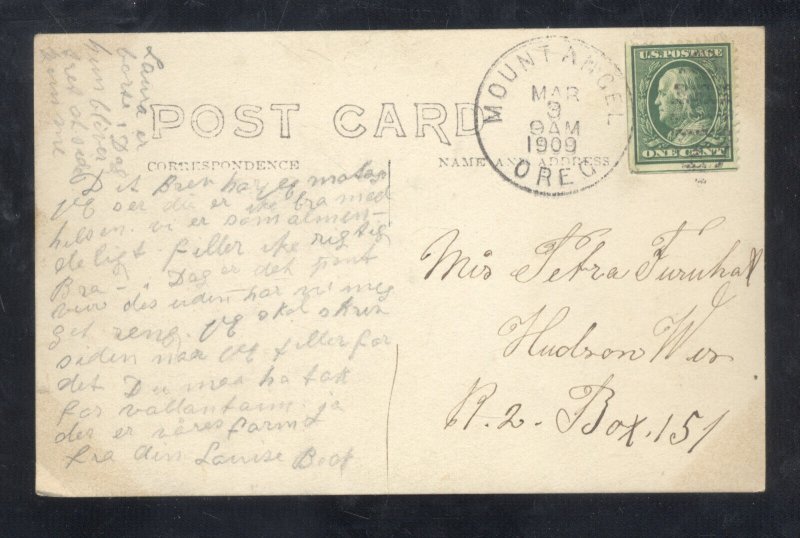 Laura er
borte i Dag
hun bliver
POST CARD
CORRESPONDENCE
NAME AND ADDRESS
MOUNT ANGEL
MAR
9
9AM
1909
OREG.
U.S. POSTAGE
ONE CENT
Dit Brev har jeg
jeg ser du er ike bra med
helsen. vi er som almen-
deligt. føller ike rigtig
Bra - i Dag er det
veir des uden har vi meg
get reng. jeg skal skriv
siden naar jeg føller for
det Du maa ha tak
for vallantain. ja
der er våres farm
fra din Louise Book
Mis Petra Furuhal
Hudson Wis
R. 2 - Box. 151